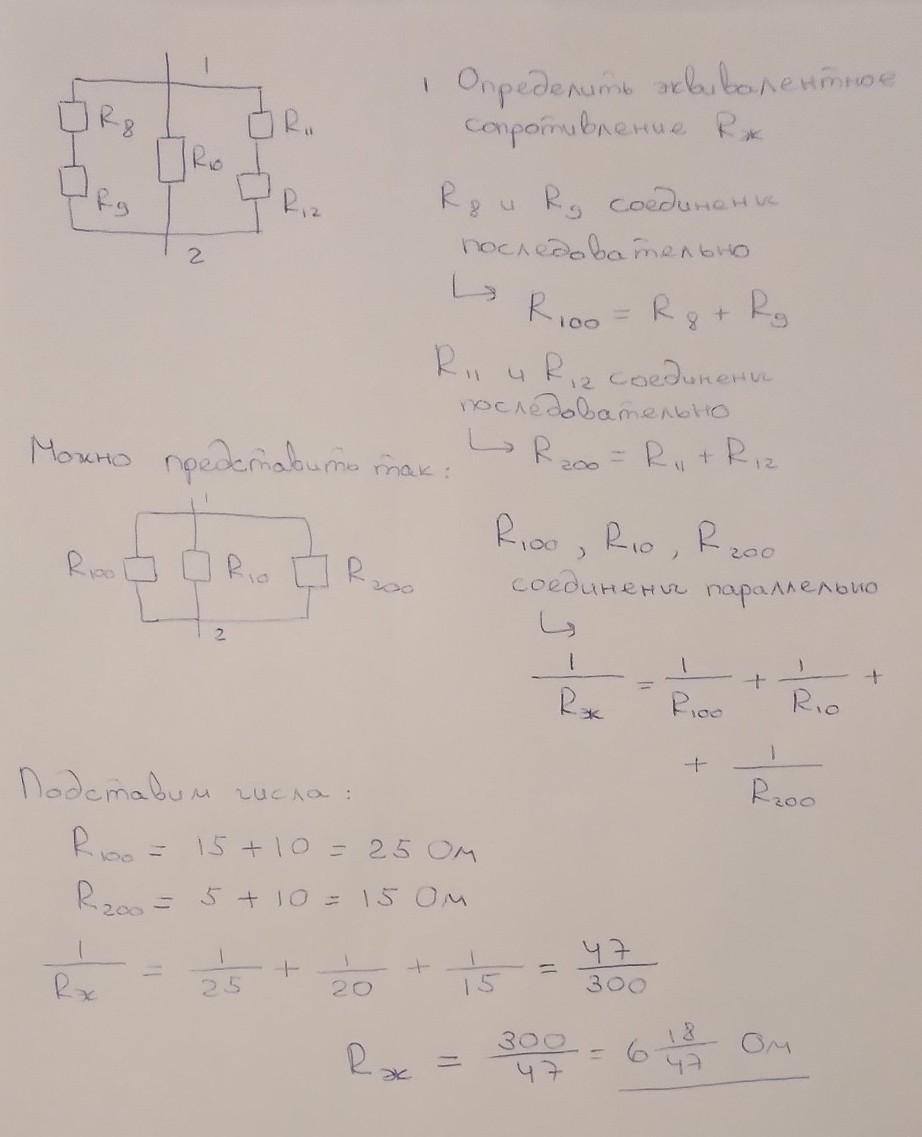 1
R8
R9
R10
R11
R12
2
1 Определить эквивалентное
сопротивление Rэк
R8 и R9 соединены
последовательно
↳ R100 = R8 + R9
R11 и R12 соединены
последовательно
↳ R200 = R11 + R12
Можно представить так:
1
R100
R10
R200
2
R100, R10, R200
соединены параллельно
↳
1/Rэк = 1/R100 + 1/R10 +
+ 1/R200
Подставим числа:
R100 = 15 + 10 = 25 Ом
R200 = 5 + 10 = 15 Ом
1/Rэк = 1/25 + 1/20 + 1/15 = 47/300
Rэк = 300/47 = 6 18/47 Ом